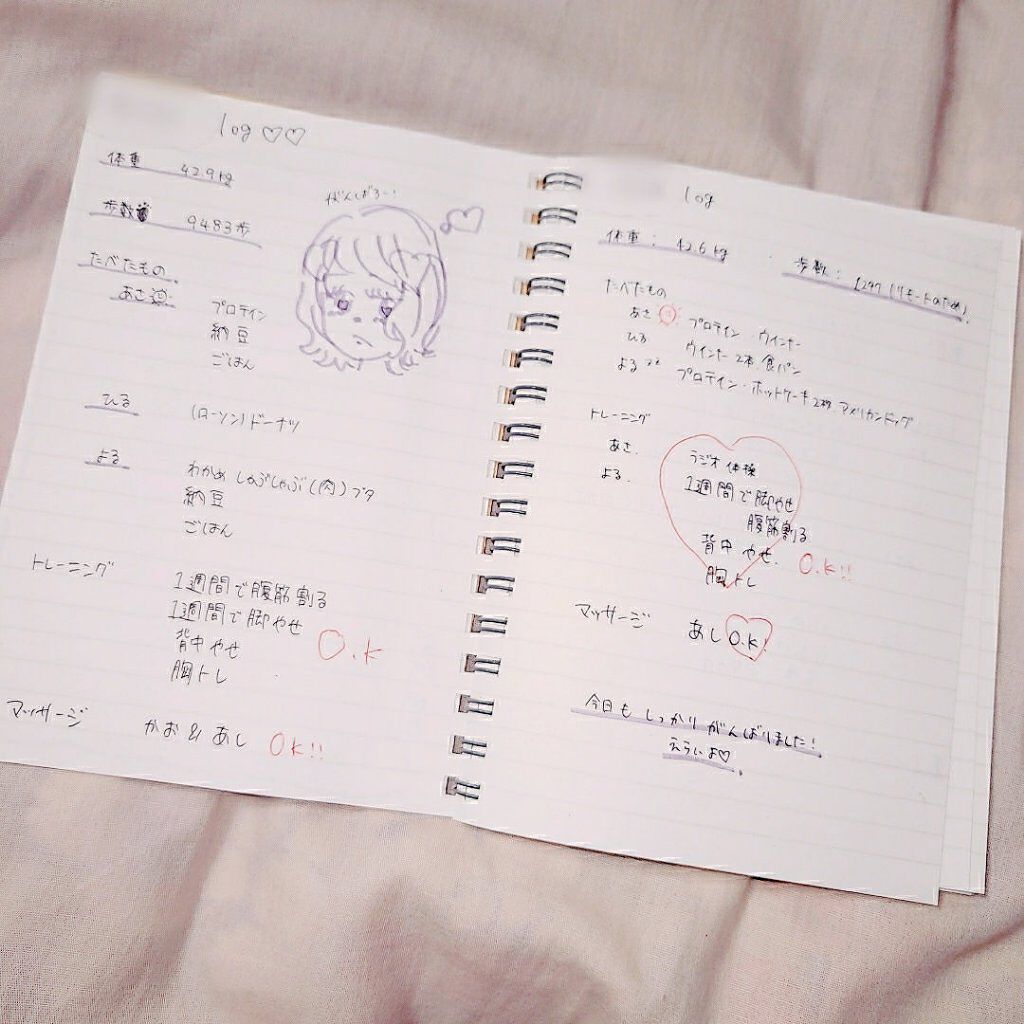 log♡♡
体重 42.9kg
歩数 9483歩
がんばろー!
たべたもの
あさ
プロテイン
納豆
ごはん
ひる
(ローソン)ドーナツ
よる
わかめ しゃぶしゃぶ(肉)ブタ
納豆
ごはん
トレーニング
1週間で腹筋割る
1週間で脚やせ
背中やせ
胸トレ
O.K
マッサージ
かお & あし OK!!
log
体重: 42.6kg
歩数: 1297 (リモートのため)
たべたもの
あさ プロテイン・ウインナー
ひる ウインナー2本、食パン
よる プロテイン・ホットケーキ2枚、アメリカンドッグ
トレーニング
あさ. ラジオ体操
よる. 1週間で脚やせ
腹筋割る
背中やせ.
胸トレ
O.K!!
マッサージ あしO.K!
今日もしっかりがんばりました!
えらいよ♡